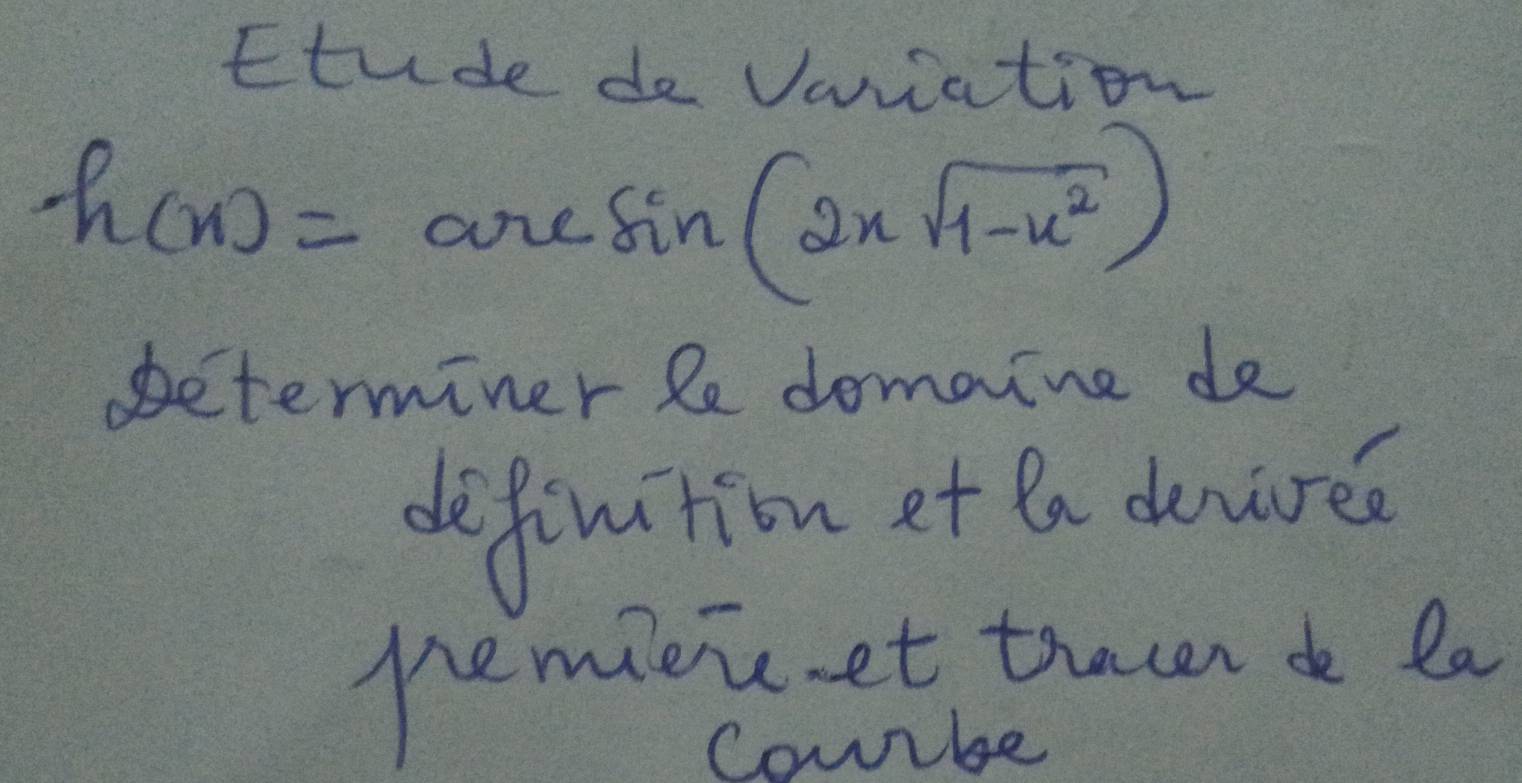 Etude de Variation
h(x) = arc sin(2x √1-x²)
Déterminer le domaine de
définition et la derivée
première et tracer de la
Courbe